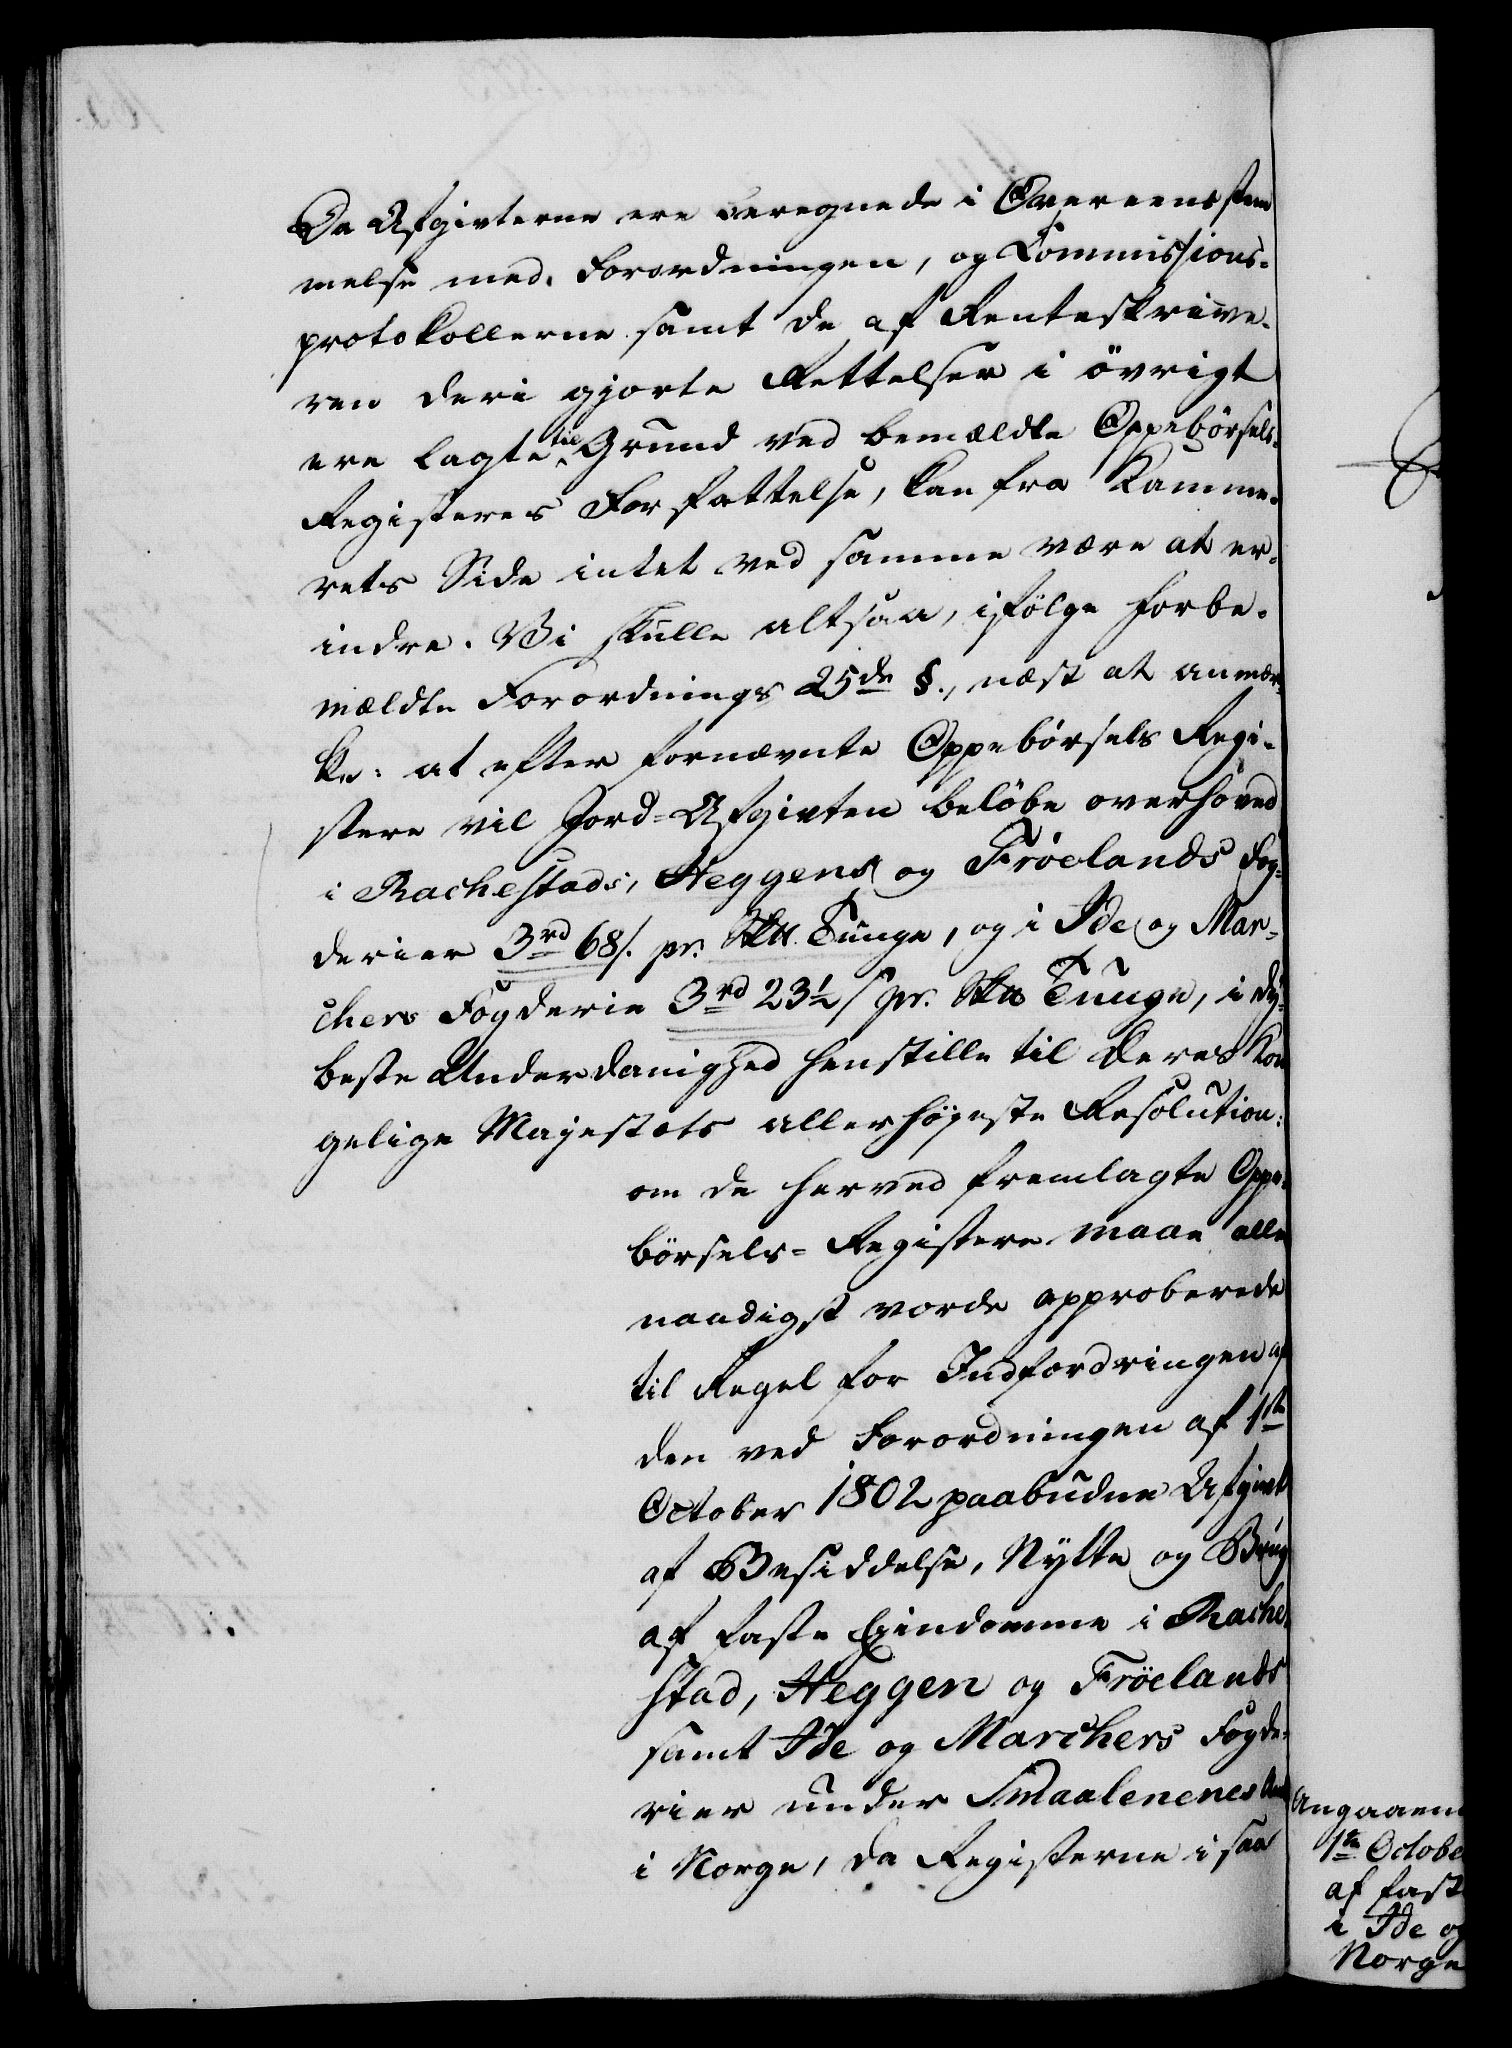 Da Afgivterne ere beregnede i Overeensstem
melse med Forordningen, og Commissions-
protokollerne samt de af Renteskrive-
ren deri gjorte Rettelser i övrigt
ere lagte til Grund ved bemældte Oppebörsels-
Registeres Forfattelse, kan fra Kamme-
rets Side intet ved samme være at er-
indre. Vi skulle altsaa, ifölge forbe-
mældte Forordnings 25de §., næst at anmær-
ke: at efter fornævnte Oppebörsels Regi-
stere vil Jord-Afgivten belöbe overhoved
i Rachestads, Heggens og Fröelands Fog-
derier 3rd 68 s. pr. Skt Tunge, og i Ide og Mar-
chers Fogderie 3rd 23½ s pr. Skt Tunge, i dy-
beste Underdanighed henstille til Deres Kon
gelige Majestæts allerhöjeste Resolution:
om de herved fremlagte Oppe-
börsels-Registere maae aller
naadigst vorde approberede
til Regel for Indfordringen af
den ved Forordningen af 1ste
October 1802 paabudne Afgivt
af Besiddelse, Nytte og Brug
af faste Ejendomme i Rache-
stad, Heggen og Fröelands
samt Ide og Marchers Fogde-
rier under Smaalenenes Amt
i Norge, da Registerne i saa
Angaaen
1ste Octobe
af fast
i Ide og
Norge